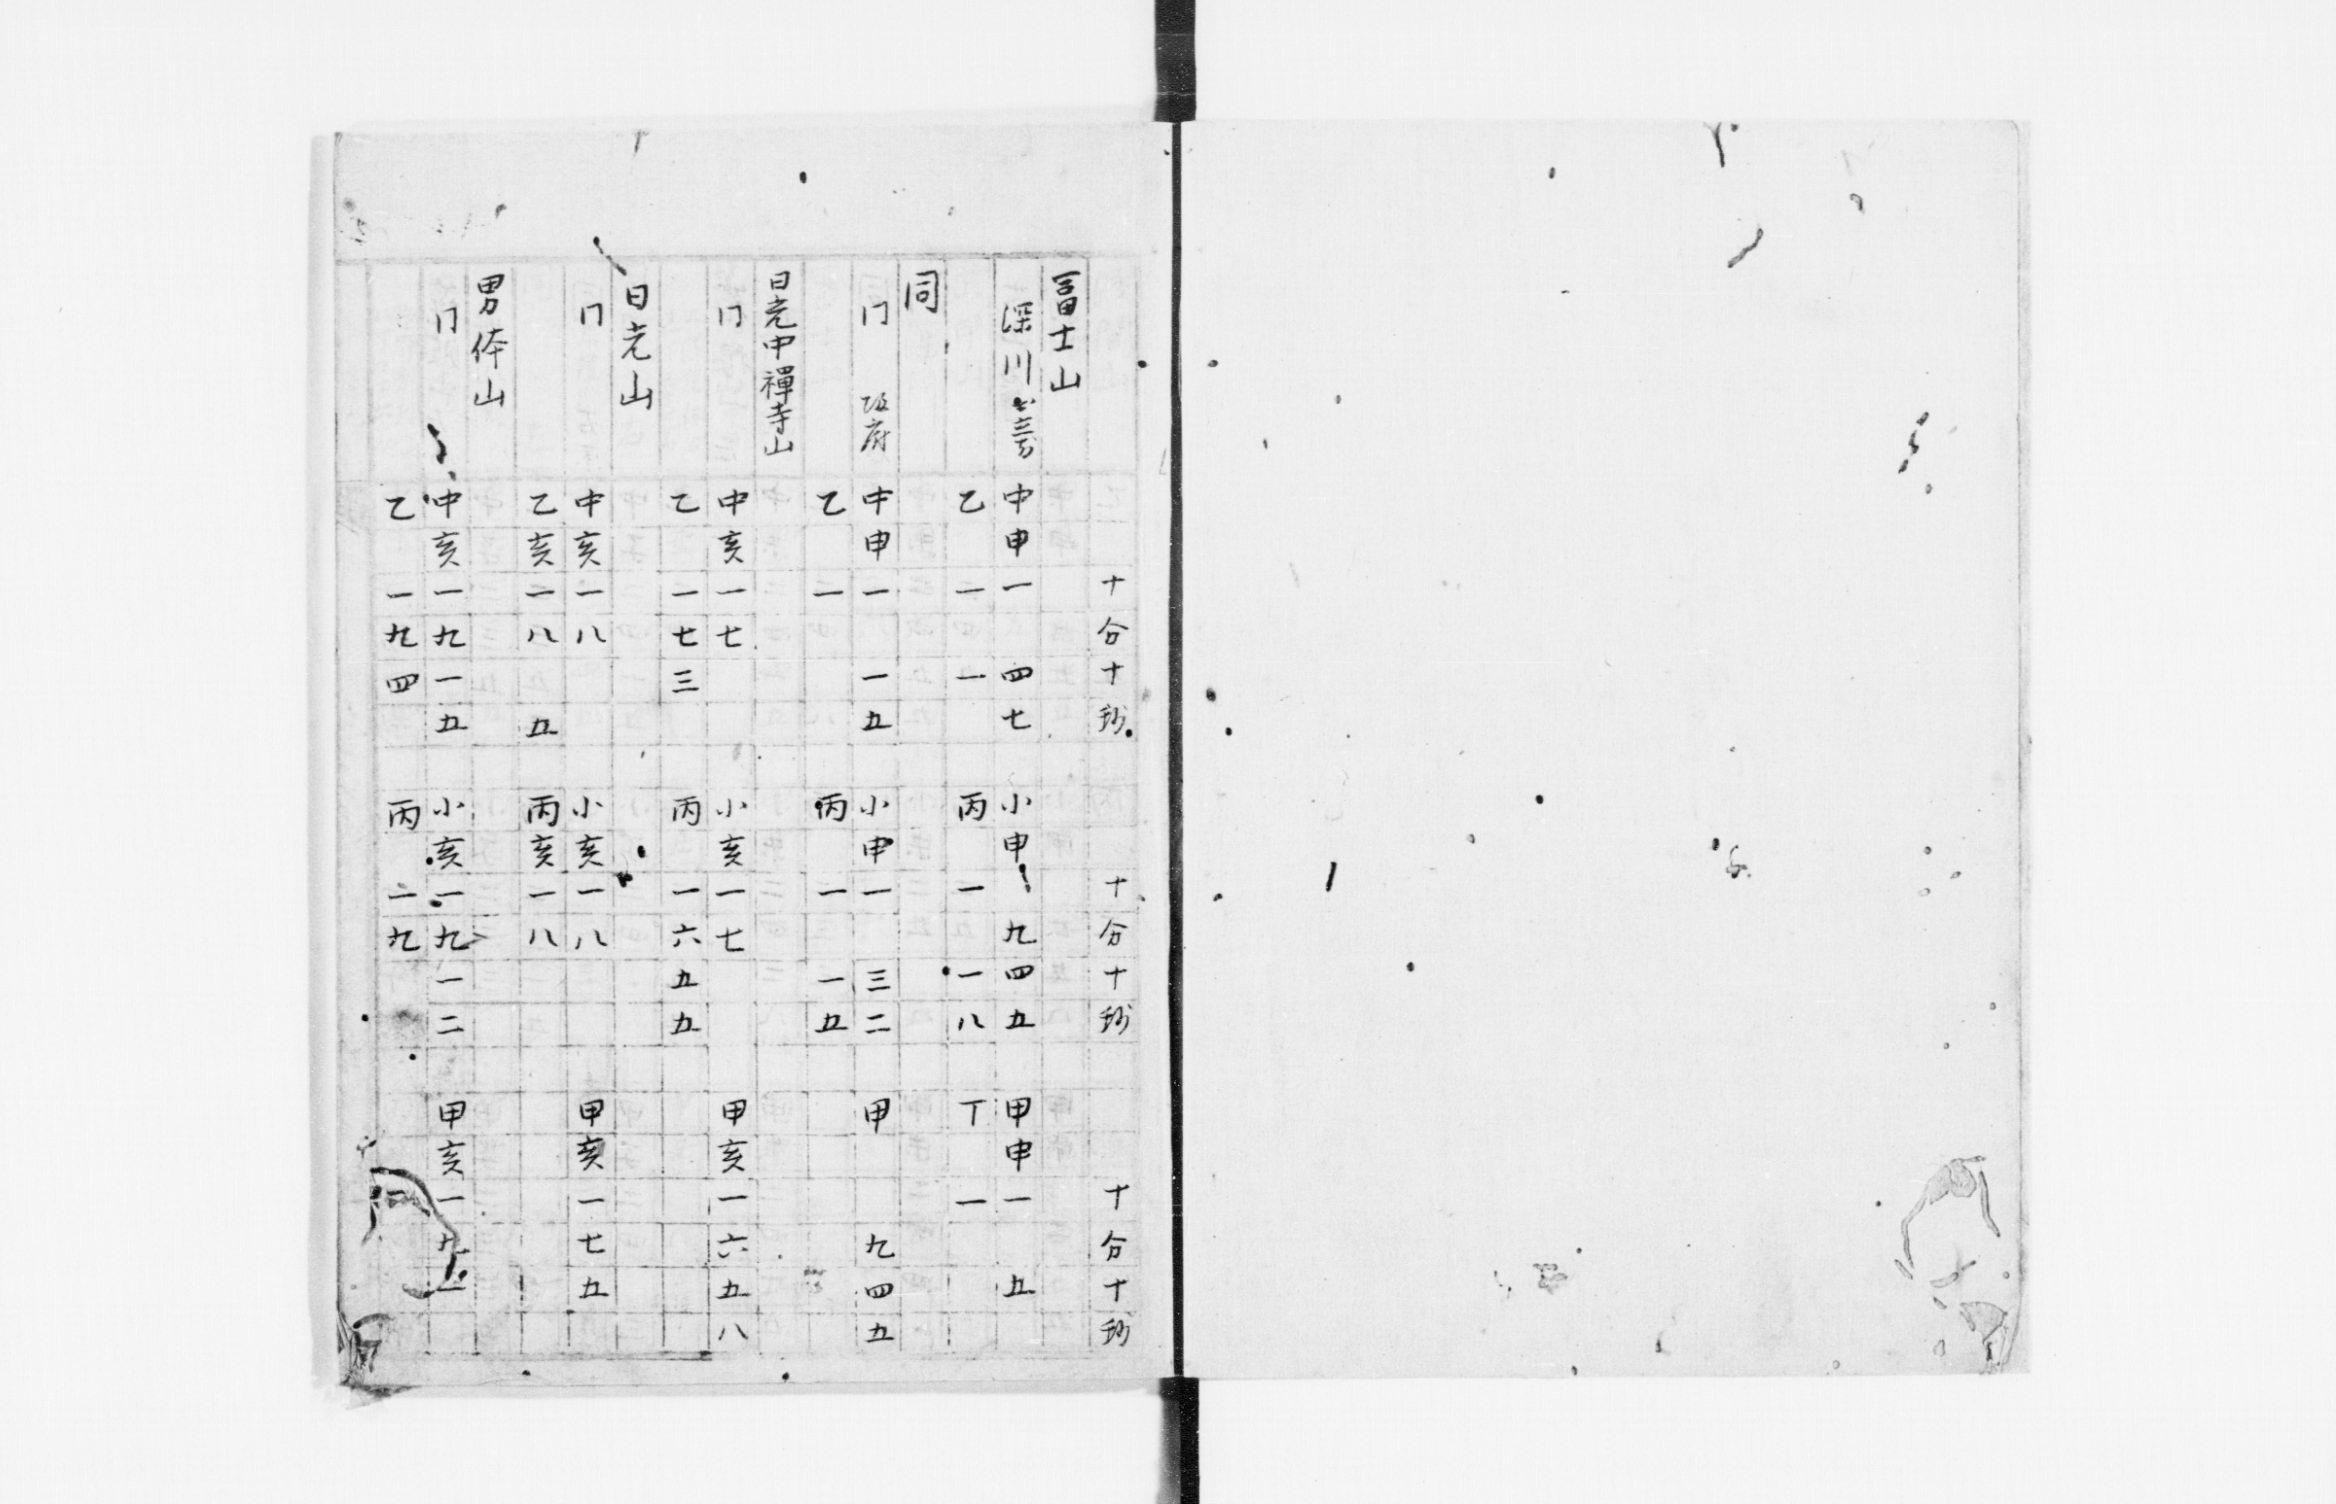 十分十秒 十分十秒 十分十秒
冨士山
深川 中申一 四七 小申一九四五 甲申一 五
乙 一 一 丙 一 一八 丁 一
同
门 中申一 一五 小申一 三二 甲 九四五
乙 一 丙 一 一五
日光中禪寺山
门 中亥一七 小亥一七 甲亥一六五八
乙 一七三 丙 一六五五
日光山
门 中亥一八 小亥一八 甲亥一七五
乙亥一八 五 丙亥一八
男体山
门 中亥一九一五 小亥一九一二 甲亥一九
乙 一九四 丙 一九